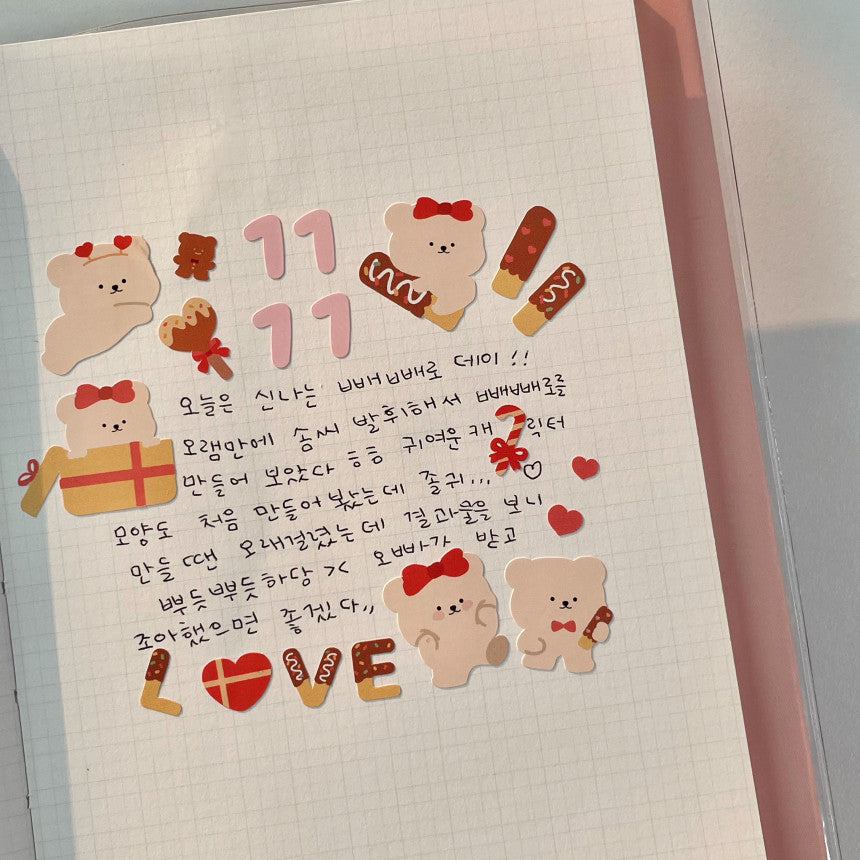 11
11
오늘은 신나는 빼빼로 데이!!
오램만에 솜씨 발휘해서 빼빼로를
만들어 보았다 흐흐 귀여운 캐릭터
모양도 처음 만들어봤는데 졸귀... ♡
만들 땐 오래걸렸는데 결과물을 보니
뿌듯뿌듯하당 >< 오빠가 받고
조아했으면 좋겠다,,
LOVE